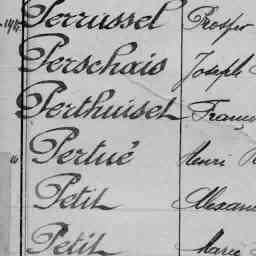 Perrussel Prosper
Perschais Joseph
Perthuiset Franç
Pertué Henri
Petit Alexan
Petit Marie